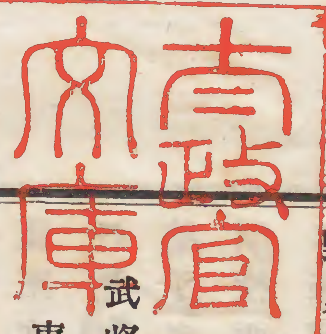 太政官
文庫
武